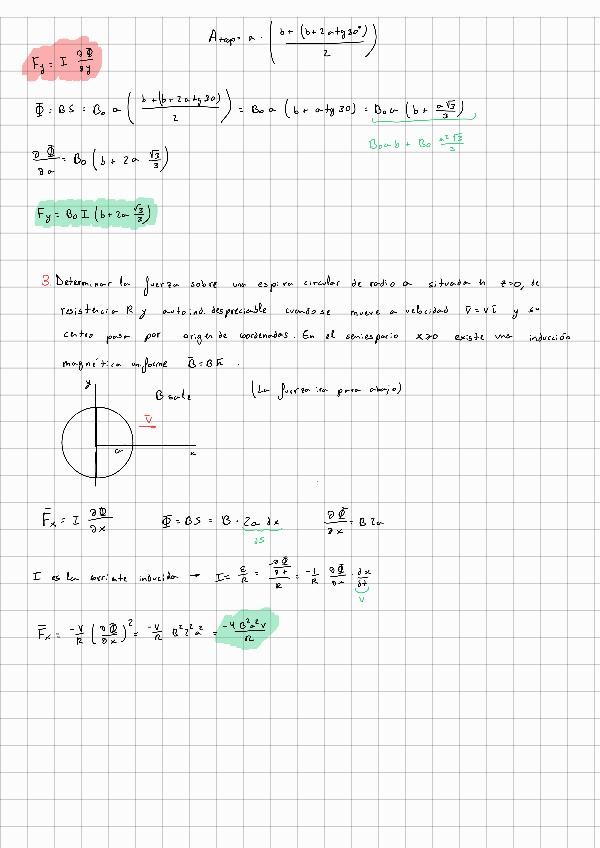 A_trap = a · ( b + (b + 2a tg 30°) / 2 )
F_y = I ∂Φ/∂y
Φ = BS = B₀ a ( b + (b + 2a tg 30) / 2 ) = B₀ a (b + a tg 30) = B₀ a (b + a√3/3)
B₀ a b + B₀ a²√3/3
∂Φ/∂a = B₀ ( b + 2a √3/3 )
F_y = B₀ I ( b + 2a √3/3 )
3. Determinar la fuerza sobre una espira circular de radio a situada en z=0, de
resistencia R y autoind. despreciable cuando se mueve a velocidad v̄ = v ī y su
centro pasa por origen de coordenadas. En el semiespacio x>0 existe una inducción
magnética uniforme B̄ = B k̄.
y
B sale
(La fuerza ira para abajo)
v̄
a
x
F̄_x = I ∂Φ/∂x
Φ = BS = B · 2a ∂x
∂S
∂Φ/∂x = B 2a
I es la corriente inducida → I = ε/R = (-∂Φ/∂t)/R = -1/R ∂Φ/∂x · ∂x/∂t
v
F̄_x = -v/R (∂Φ/∂x)² = -v/R B² 2² a² = -4B²a²v/R